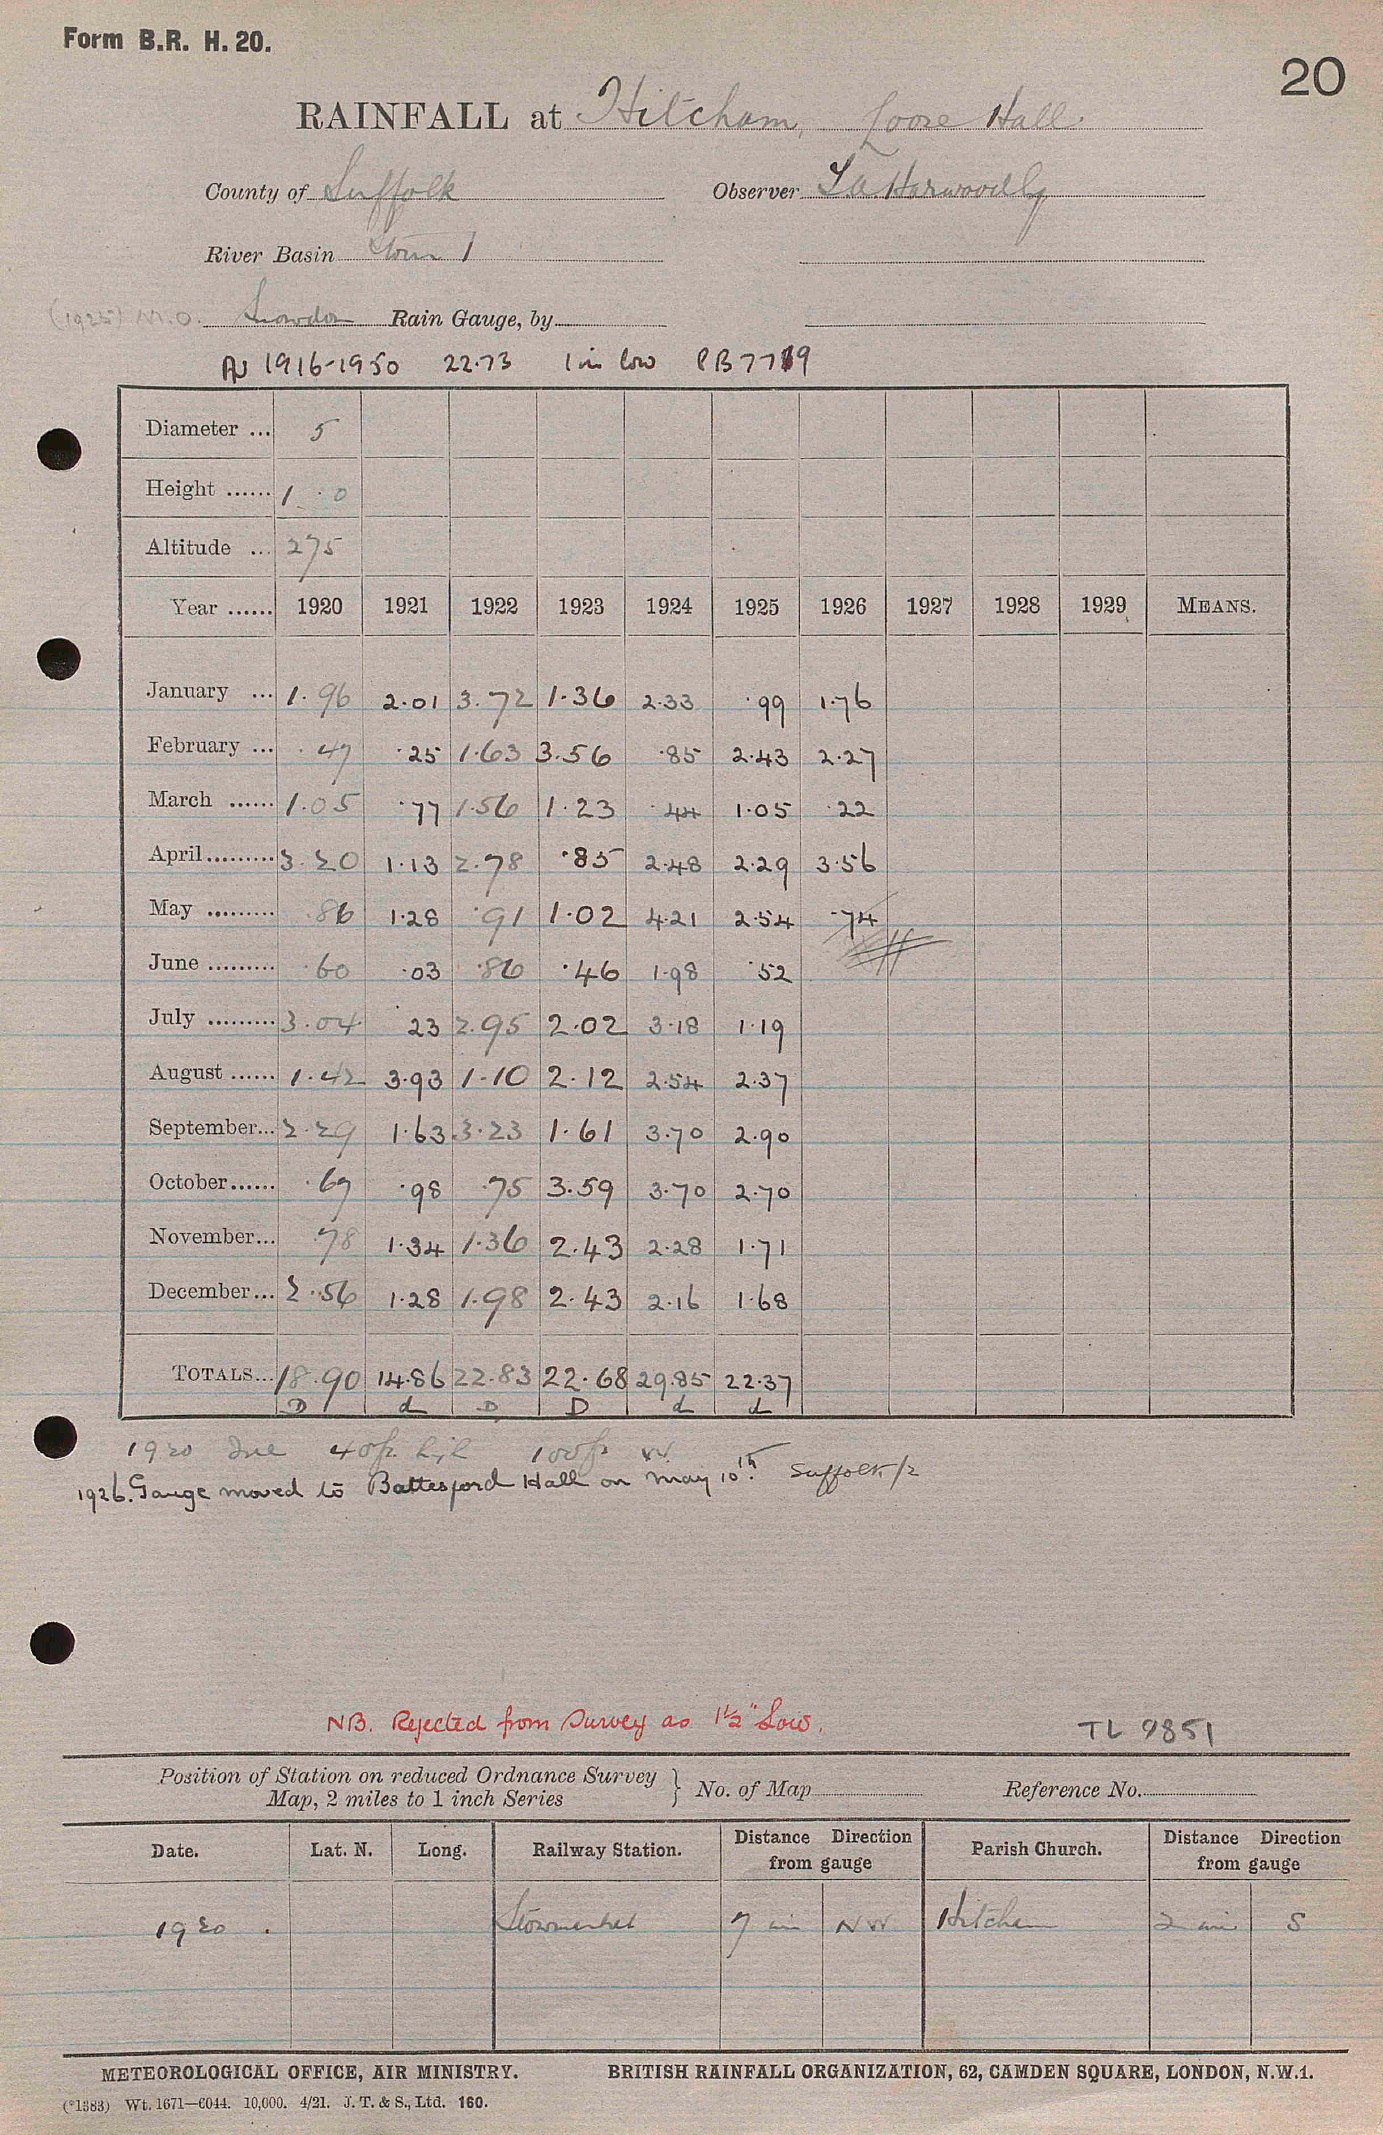 Form B.R. H. 20.
20
RAINFALL at Hitcham, Loose Hall.
County of Suffolk Observer
River Basin Stour 1
(1925) M.O. Snowdon Rain Gauge, by
Av 1916-1950 22.73 1 in low PB7719
Diameter ... 5
Height ...... 1 . 0
Altitude ... 275
Year ...... 1920 1921 1922 1923 1924 1925 1926 1927 1928 1929 MEANS.
January ... 1.96 2.01 3.72 1.36 2.33 .99 1.76
February ... .47 .25 1.63 3.56 .85 2.43 2.27
March ...... 1.05 .77 1.56 1.23 .44 1.05 .22
April ......... 3.20 1.13 2.78 .85 2.48 2.29 3.56
May ......... .86 1.28 .91 1.02 4.21 2.54 .74
June ......... .60 .03 .86 .46 1.98 .52
July ......... 3.04 .23 2.95 2.02 3.18 1.19
August ...... 1.42 3.93 1.10 2.12 2.54 2.37
September... 2.29 1.63 3.23 1.61 3.70 2.90
October...... .67 .98 .75 3.59 3.70 2.70
November... .78 1.34 1.36 2.43 2.28 1.71
December... 2.56 1.28 1.98 2.43 2.16 1.68
TOTALS... 18.90 14.86 22.83 22.68 29.85 22.37
D d D D d d
1920 Tree 40 ft. high 100 ft. W.
1926. Gauge moved to Battesford Hall on May 10th. Suffolk/2
NB. Rejected from Survey as 1½" Low.
TL 9851
Position of Station on reduced Ordnance Survey } No. of Map Reference No.
Map, 2 miles to 1 inch Series
Date. Lat. N. Long. Railway Station. Distance Direction Parish Church. Distance Direction
from gauge from gauge
1920 . Stowmarket 7 mi NW Hitcham 2 mi S
METEOROLOGICAL OFFICE, AIR MINISTRY. BRITISH RAINFALL ORGANIZATION, 62, CAMDEN SQUARE, LONDON, N.W.1.
(*1383) Wt. 1671—6044. 10,000. 4/21. J. T. & S., Ltd. 160.